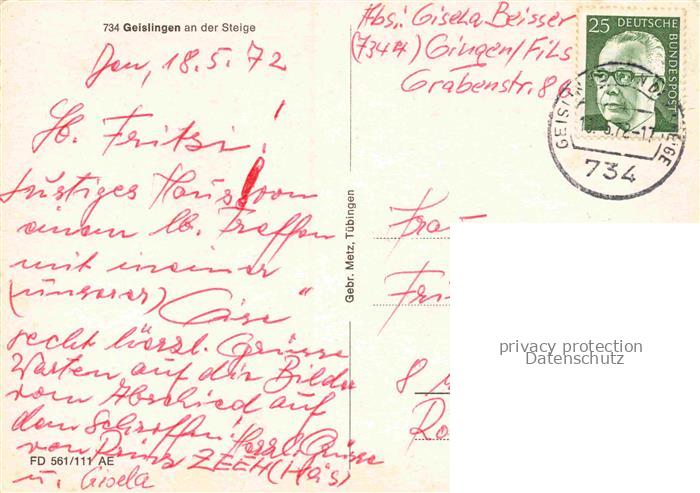 734 Geislingen an der Steige
Den, 18.5.72
Lb. Fritzi!
Lustiges Haus! von
einem lb. Treffen
mit meiner
(unserer)
recht herzl. Grüsse
Warten auf die Bilder
vom Abschied auf
dem Schroffen! Herzl. Grüsse
von ZEEH (Hä's)
u. Gisela
FD 561/111 AE
Gebr. Metz, Tübingen
Abs.: Gisela Beisser
(7344) Gingen/Fils
Grabenstr. 8
25 DEUTSCHE
BUNDESPOST
734
Frau
8
privacy protection
Datenschutz